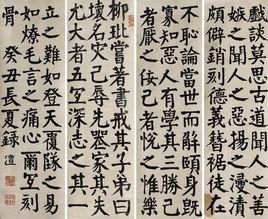 戲談莫思古道聞人之善
嫉之聞人之惡揚之浸漬
頗僻銷刻德義簪裾徒在
不恥論當世而解頤身既
寡知惡人有學其三勝己
者厭之佞己者悅之惟樂
柳玭嘗著書戒其子弟曰
壞名災己辱先喪家其失
尤大者五宜深志之其一
立之難如登天覆隊之易
如燎毛言之痛心爾宜刻
骨
癸丑長夏録